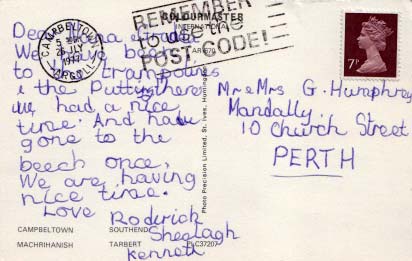 REMEMBER
TO USE THE
POST CODE!
COLOURMASTER
INTERNATIONAL
CAMPBELTOWN
5 PM
JULY
1977
ARGYLL
7P
Dear
We have been
to the trampolines
& the Putting there
we had a nice
time. And have
gone to the
beech once,
We are having
nice time.
Love Roderick
Sheelagh
Kenneth
Photo Precision Limited, St. Ives, Huntingdon
Mr & Mrs G. Humphrey
Mandally.
10 Church Street
PERTH
CAMPBELTOWN SOUTHEND
MACHRIHANISH TARBERT PLC37207